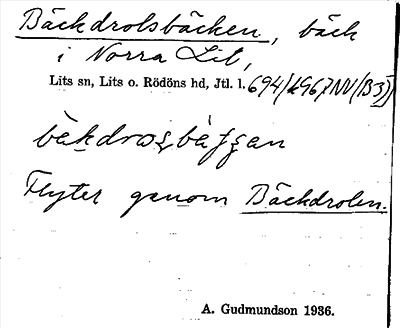 Bäckdrolsbäcken, bäck
i Norra Lit,
Lits sn, Lits o. Rödöns hd, Jtl. l. 694/k967NV(B3)
Flyter genom Bäckdrolen.
A. Gudmundson 1936.